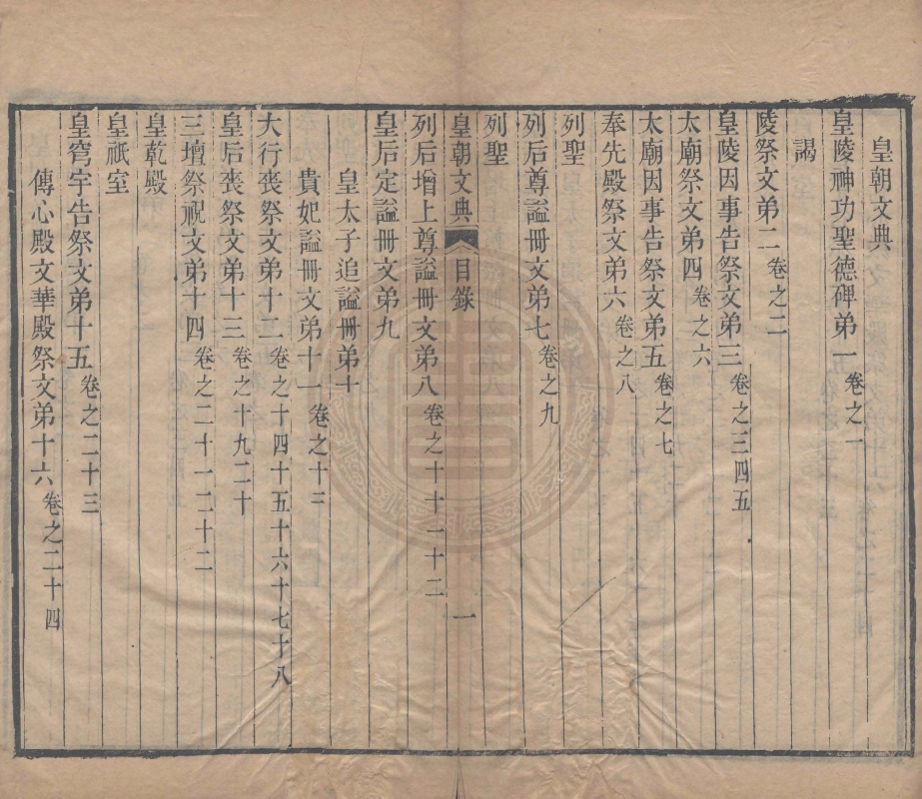 皇朝文典
皇陵神功聖德碑弟一 卷之一
謁
陵祭文弟二 卷之二
皇陵因事告祭文弟三 卷之三四五
太廟祭文弟四 卷之六
太廟因事告祭文弟五 卷之七
奉先殿祭文弟六 卷之八
列聖
列后尊謚冊文弟七 卷之九
列聖
皇朝文典 目錄 一
列后增上尊謚冊文弟八 卷之十十一十二
皇后定謚冊文弟九
皇太子追謚冊弟十
貴妃謚冊文弟十一 卷之十三
大行喪祭文弟十二 卷之十四十五十六十七十八
皇后喪祭文弟十三 卷之十九二十
三壇祭祝文弟十四 卷之二十一二十二
皇乾殿
皇祇室
皇穹宇告祭文弟十五 卷之二十三
傳心殿文華殿祭文弟十六 卷之二十四